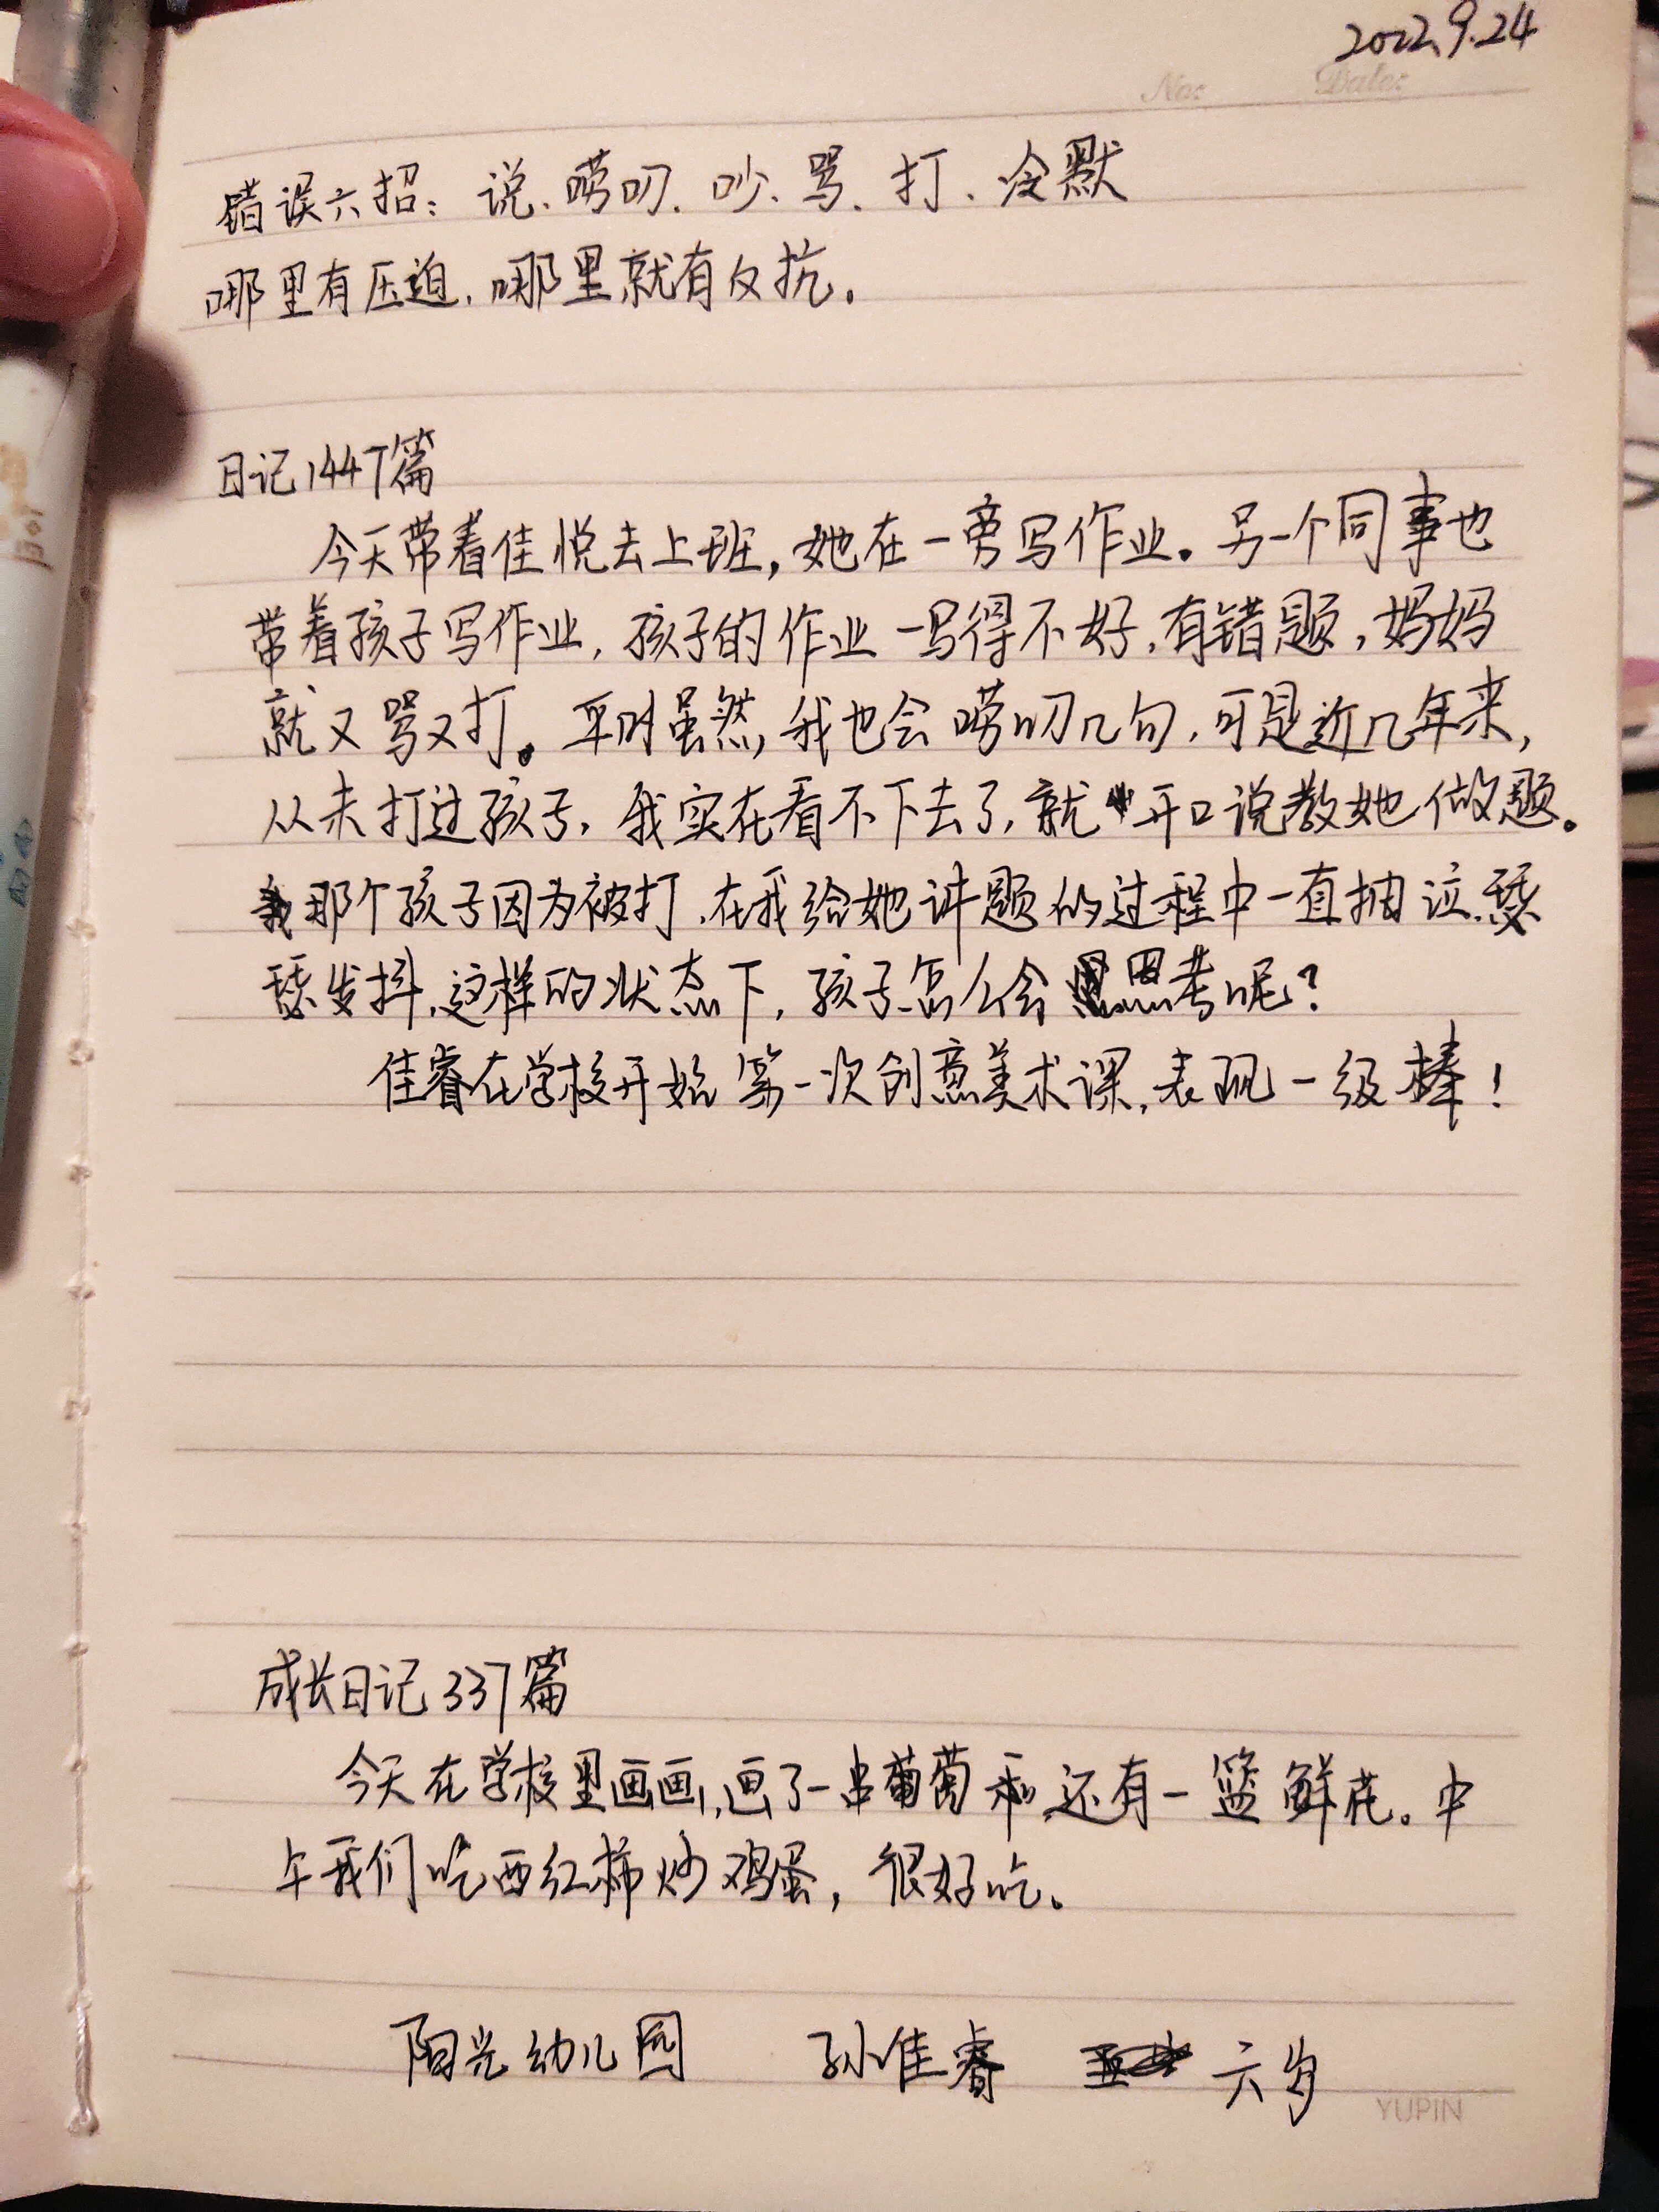 2022.9.24
No: Date:
错误六招：说、唠叨、吵、骂、打、冷默
哪里有压迫，哪里就有反抗。
日记1447篇
今天带着佳悦去上班，她在一旁写作业。另一个同事也
带着孩子写作业，孩子的作业一写得不好，有错题，妈妈
就又骂又打。平时虽然，我也会唠叨几句，可是近几年来，
从未打过孩子，我实在看不下去了，就开口说教她做题。
那个孩子因为被打，在我给她讲题的过程中一直抽泣，瑟
瑟发抖，这样的状态下，孩子怎么会思考呢？
佳睿在学校开始第一次创意美术课，表现一级棒！
成长日记337篇
今天在学校里画画，画了一串葡萄和还有一篮鲜花。中
午我们吃西红柿炒鸡蛋，很好吃。
阳光幼儿园 孙佳睿 六岁
YUPIN